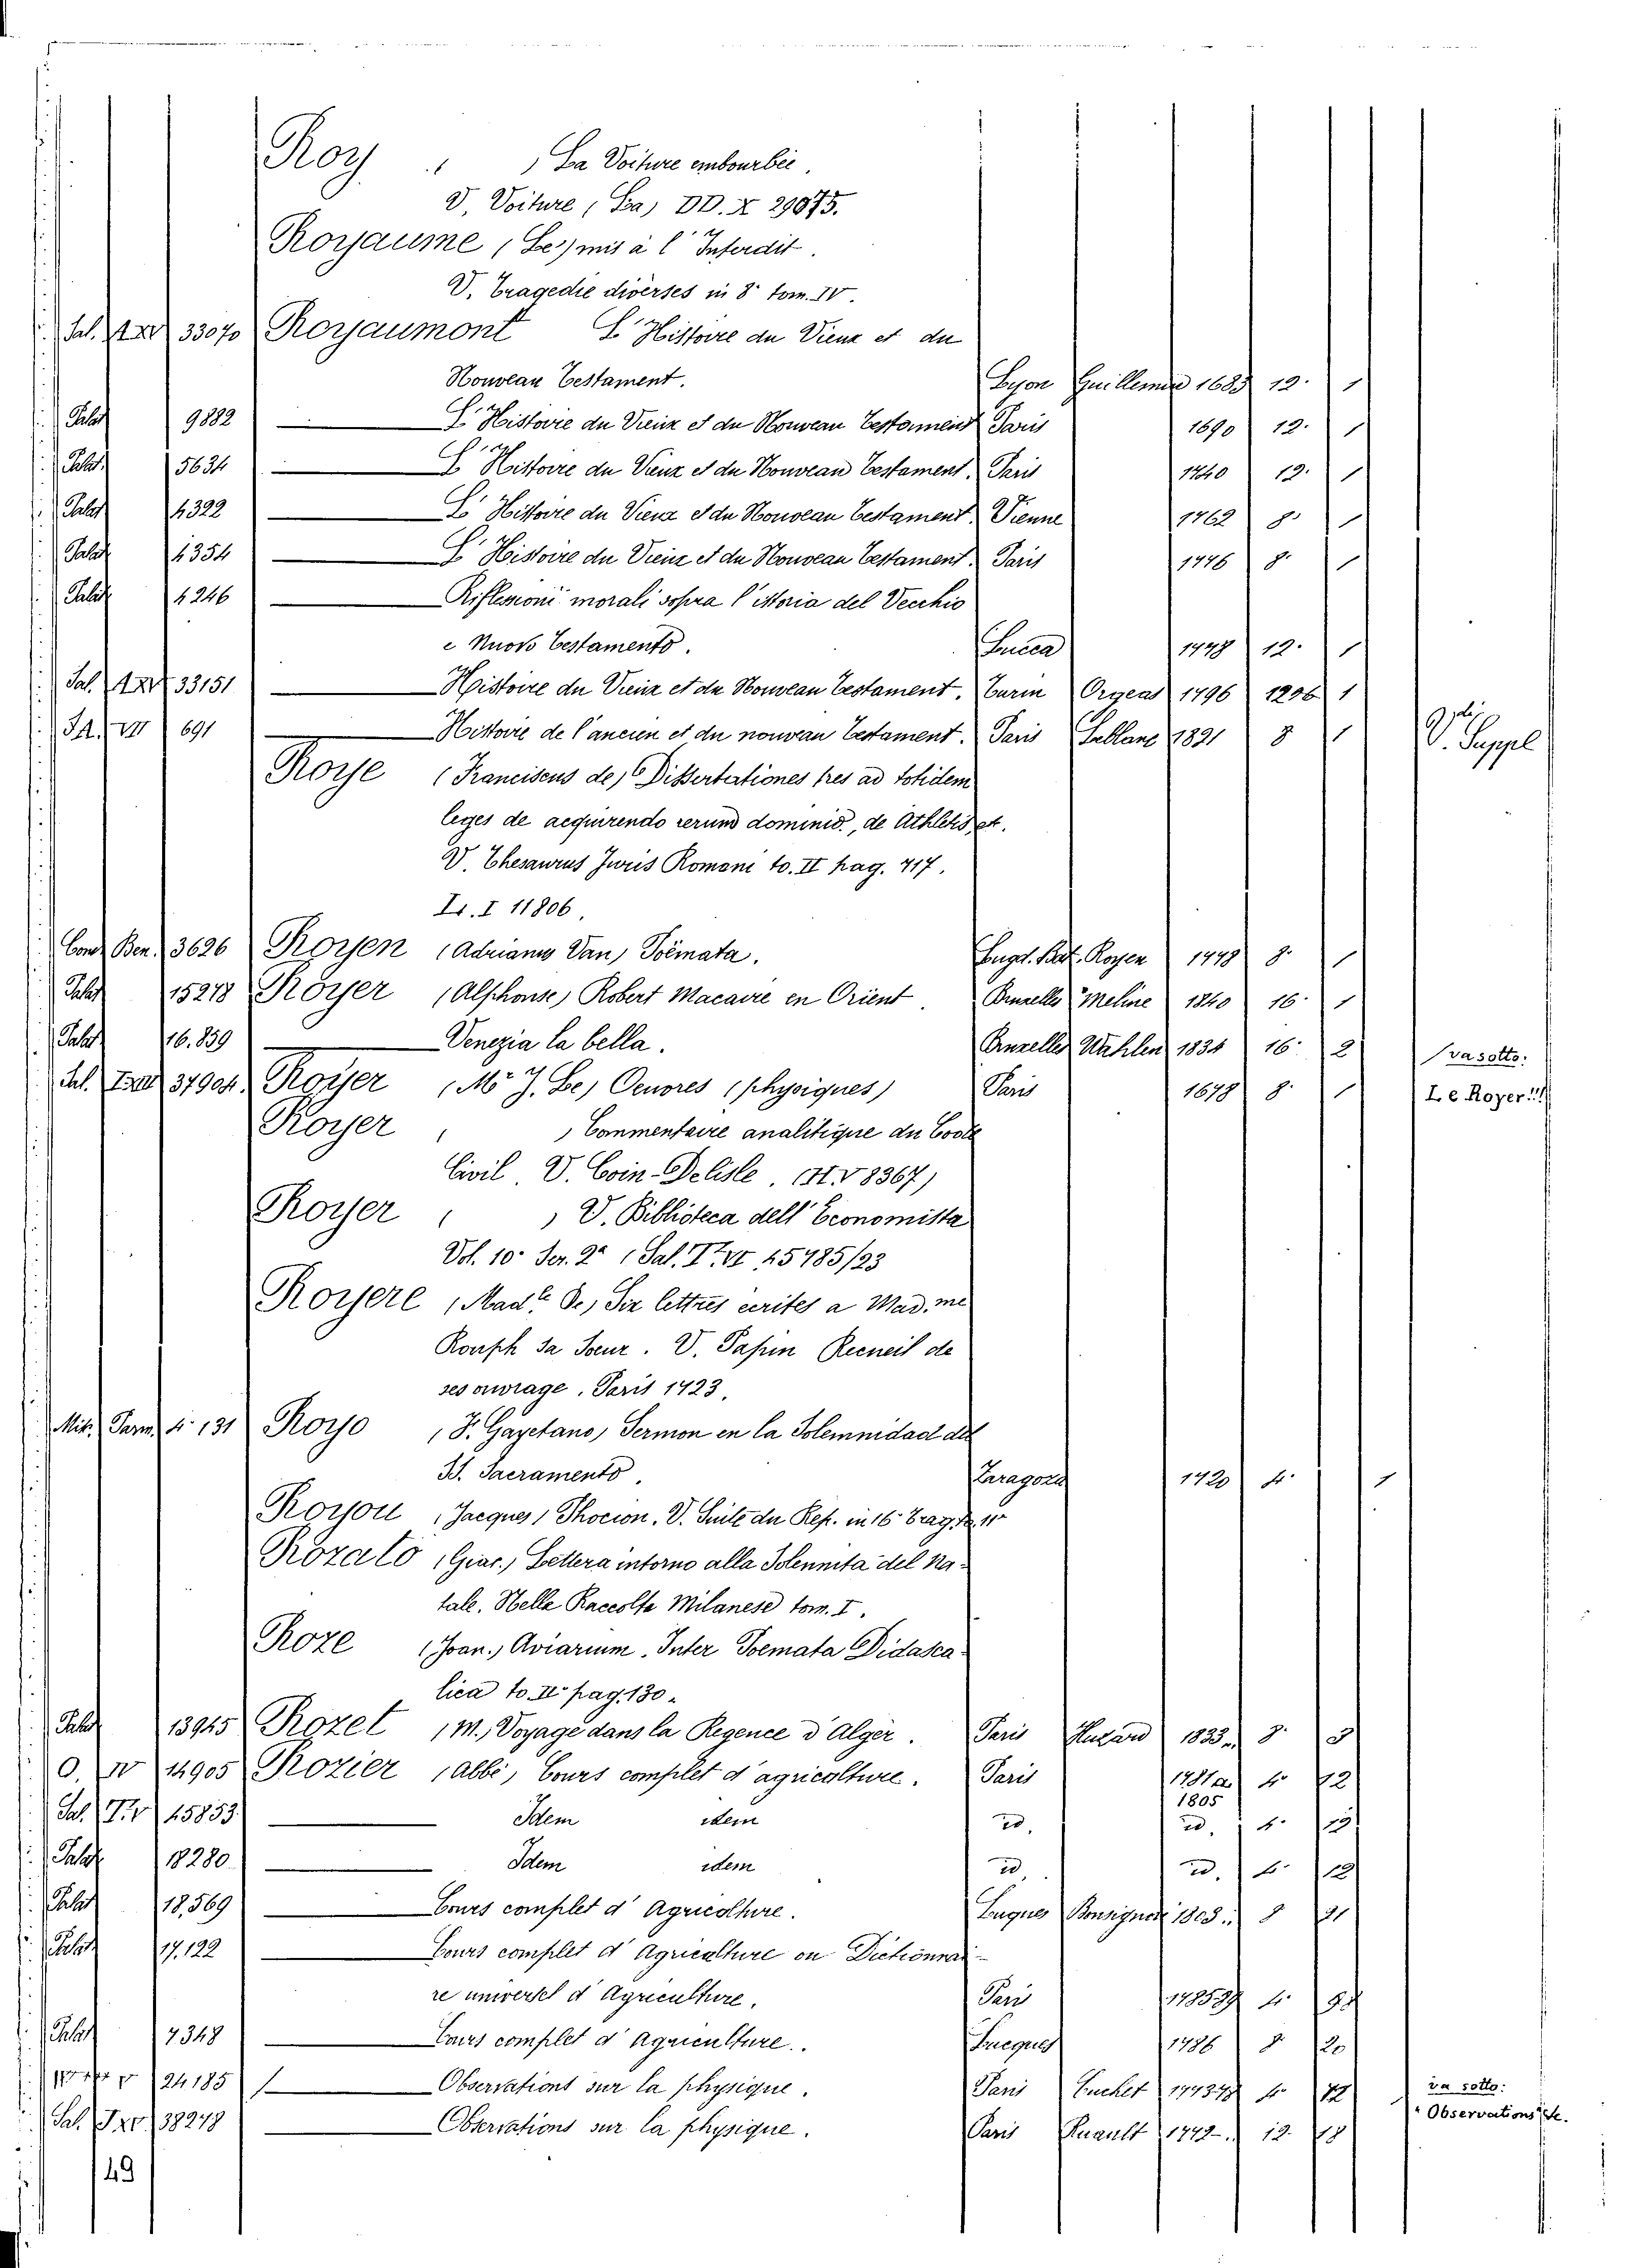 Roy ( ) La Voiture embourbée.
V. Voiture (La) DD. X 29075.
Royaume (Le) mis à l'Interdit.
V. Tragedie diverses in 8° tom. IV.
Sal. 33070 Royaumont L'Histoire du Vieux et du
Nouveau Testament. Lyon 1683 12. 1
Palat. 9882 — L'Histoire du Vieux et du Nouveau Testament Paris 1690 12. 1
Palat. 5634 — L'Histoire du Vieux et du Nouveau Testament. Paris 1740 12. 1
Palat. 4322 — L'Histoire du Vieux et du Nouveau Testament. Vienne 1762 8° 1
Palat. 4354 — L'Histoire du Vieux et du Nouveau Testament. Paris 1776 8° 1
Palat. 4246 — Riflessioni morali sopra l'istoria del Vecchio
e Nuovo Testamento. Lucca 1778 12. 1
Sal. 33151 — Histoire du Vieux et du Nouveau Testament. Turin Orgeas 1796 1
691 — Histoire de l'ancien et du nouveau testament. Paris Leblanc 1821 8 1 V. Suppl
Roye (Franciscus de) Dissertationes tres ad totidem
leges de acquirendo rerum dominio, de Athletis et.
V. Thesaurus Juris Romani to. II pag. 717.
I. I 11806.
Ben. 3626 Royen (Adrianus Van) Poëmata. Lugd. Bat. Royen 1778 8° 1
Palat 15218 Royer (Alphonse) Robert Macaire en Orient. Bruxelles Meline 1840 16. 1
Palat 16.859 — Venezia la bella. Bruxelles Wahlen 1834 16. 2 va sotto:
Sal. 37904 Royer (Mr J. Le) Oeuvres (physiques) Paris 1678 8. 1 Le Royer!!!
Royer ( ) Commentaire analitique du Code
Civil. V. Coin-Delisle. (H.V 8367)
Royer ( ) V. Biblioteca dell'Economista
Vol. 10° Ser. 2ª (Sal. 45785/23
Royere (Made De) Six lettres ecrites a Mad.me
Rouph sa Soeur. V. Papin Recueil de
ses ouvrage. Paris 1723.
Misc. Parm. 4° 131 Royo (F. Gayetano) Sermon en la Solemnidad del
SS. Sacramento. Zaragoza 1720 4. 1
Royou (Jacques) Phocion. V. Suite du Rep. in 16° Trag.
Rozalo (Giac.) Lettera intorno alla Solennità del Na-
tale. Nelle Raccolta Milanese tom. I.
Roze (Joan.) Aviarium. Inter Poemata Didasca-
lica to. II pag. 130.
Palat 13945 Rozet (M.) Voyage dans la Regence d'Alger. Paris 1833 8. 3
O. IV 14905 Rozier (abbé) Cours complet d'agricolture. Paris 1781 a 1805 4. 12
Sal. 45853 — Idem idem id. id. 4. 12
Palat 18280 — Idem idem id. id. 4. 12
Palat 18,569 — Cours complet d'Agricolture. Luques 1803 8 21
Palat 17.122 — Cours complet d'Agriculture ou Dictionnai-
re universel d'Agriculture. Paris 4.
Palat 7348 — Cours complet d'Agriculture. Lucques 1786 8 20
24185 — Observations sur la physique. Paris 4. va sotto:
Sal. 38278 — Observations sur la physique. Paris Ruault 12. 18 Observations etc.
49